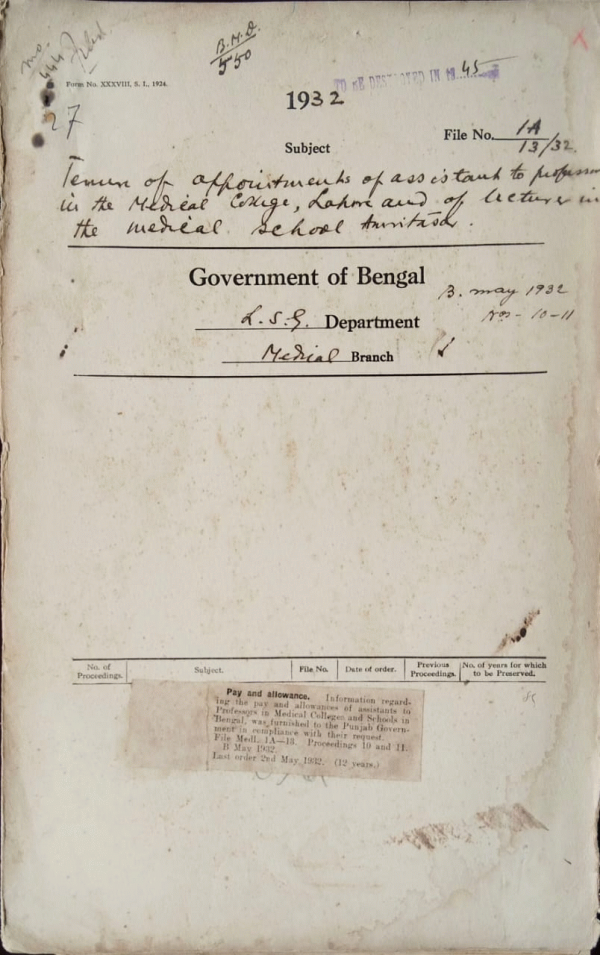 B.N.D.
550
Form No. XXXVIII, S. I., 1924.
TO BE DESTROYED IN 19 45
27
1932
File No. 1A
13/32.
Subject
Tenure of appointments of assistant to professor
in the Medical College, Lahore and of lecturer in
the medical school Amritasar.
Government of Bengal
B. May 1932
Nos - 10-11
L. S. G. Department
Medical Branch
No. of Proceedings. Subject. File No. Date of order. Previous Proceedings. No. of years for which to be Preserved.
Pay and allowance. Information regard-
ing the pay and allowances of assistants to
Professors in Medical Colleges and Schools in
Bengal, was furnished to the Punjab Govern-
ment in compliance with their request.
File Medl. 1A—13. Proceedings 10 and 11.
B May 1932.
Last order 2nd May 1932. (12 years.)